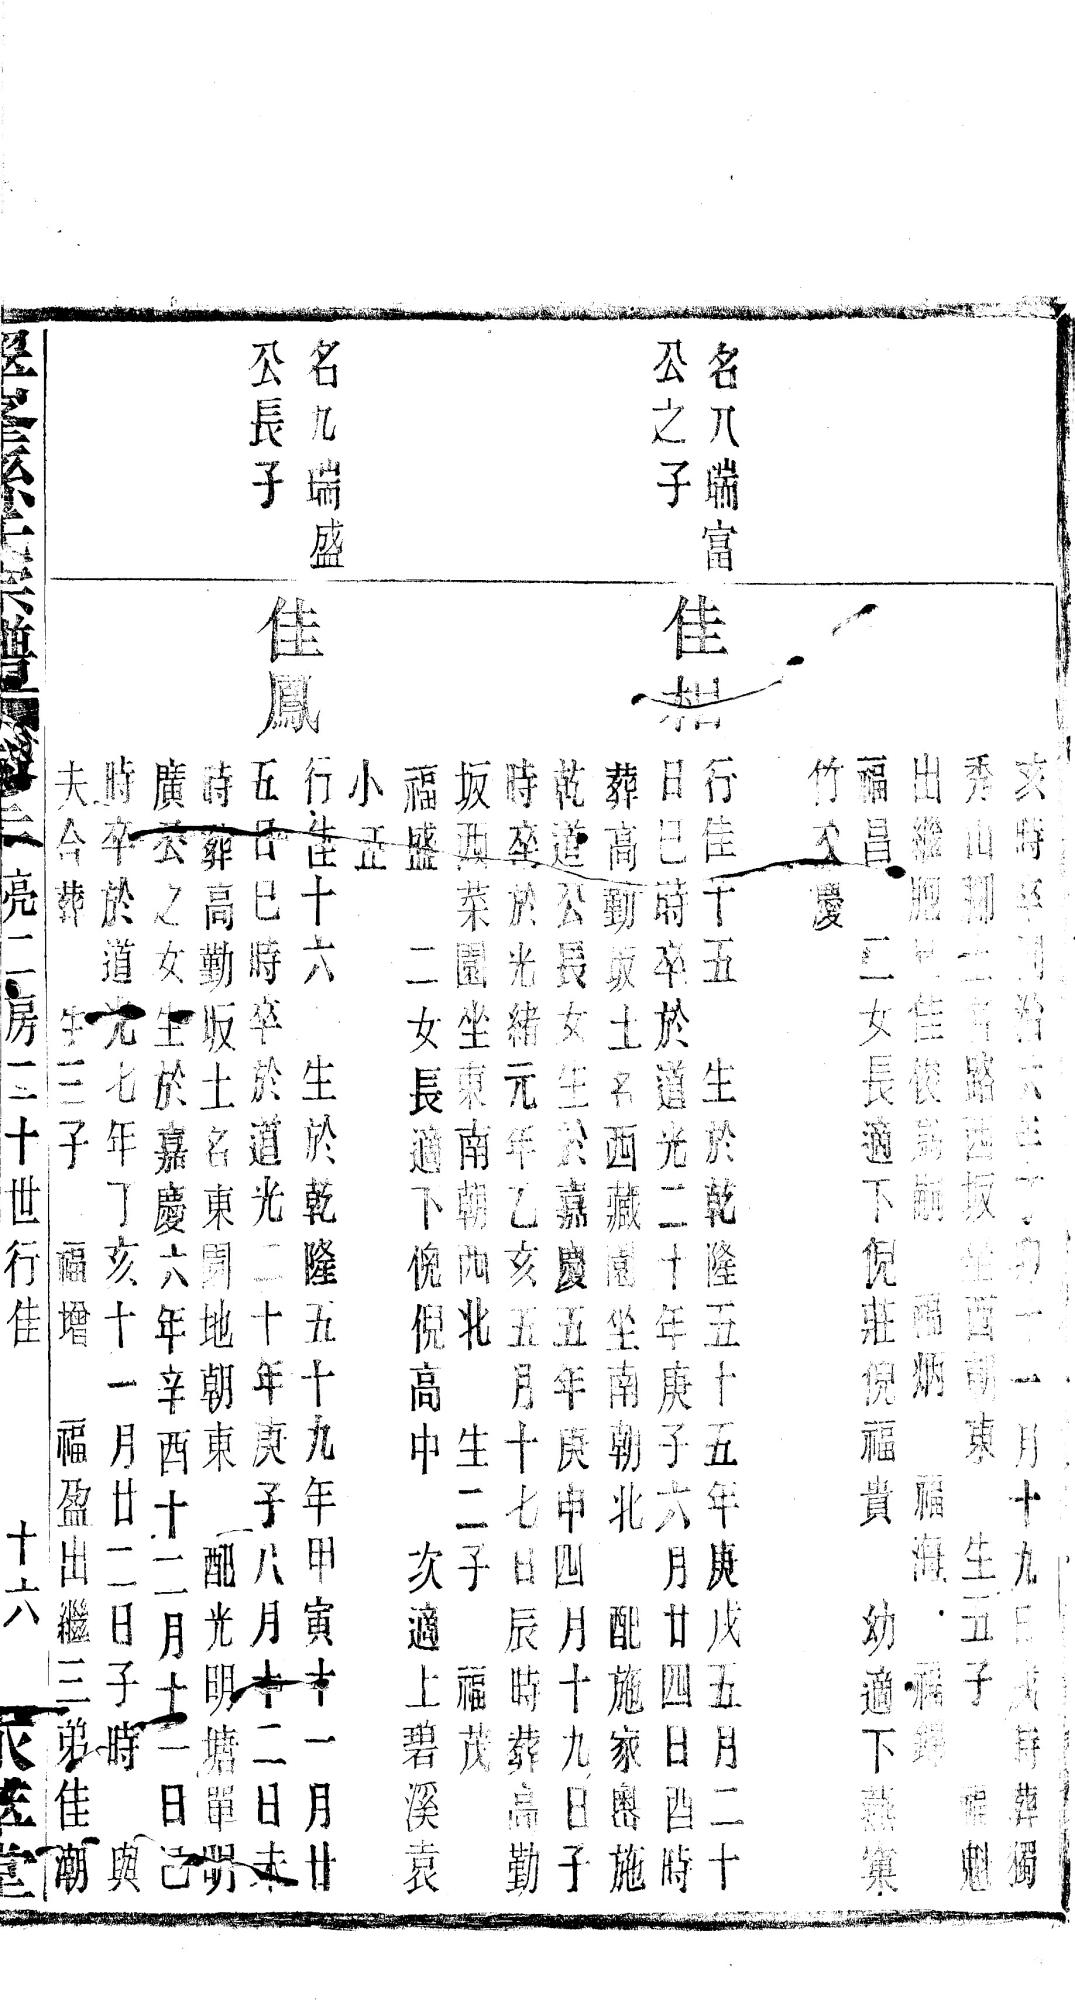 亥時卒同治六年丁卯十一月十九日戌時葬獨
秀山腳二路西坂坐酉朝東　生五子　福魁
出繼胞兄佳俊為嗣　福炳　福海　福鐸
福昌　二女長適下倪莊倪福貴　幼適下燕窠
竹文慶
名八瑞富
公之子
佳相
行佳十五　生於乾隆五十五年庚戌五月二十
日巳時卒於道光二十年庚子六月廿四日酉時
葬高勤坂土名西藏園坐南朝北　配施家嶴施
乾道公長女生於嘉慶五年庚申四月十九日子
時卒於光緒元年乙亥五月十七日辰時葬高勤
坂西菜園坐東南朝西北　生二子　福茂
福盛　二女長適下倪倪高中　次適上碧溪袁
小正
名九瑞盛
公長子
佳鳳
行佳十六　生於乾隆五十九年甲寅十一月廿
五日巳時卒於道光二十年庚子八月十二日未
時葬高勤坂土名東園地朝東　配光明塘單明
廣公之女生於嘉慶六年辛酉十二月十一日己
時卒於道光七年丁亥十一月廿二日子時　與
夫合葬　生三子　福增　福盈出繼三弟佳潮
宗譜　卷二　亮二房二十世行佳　十六